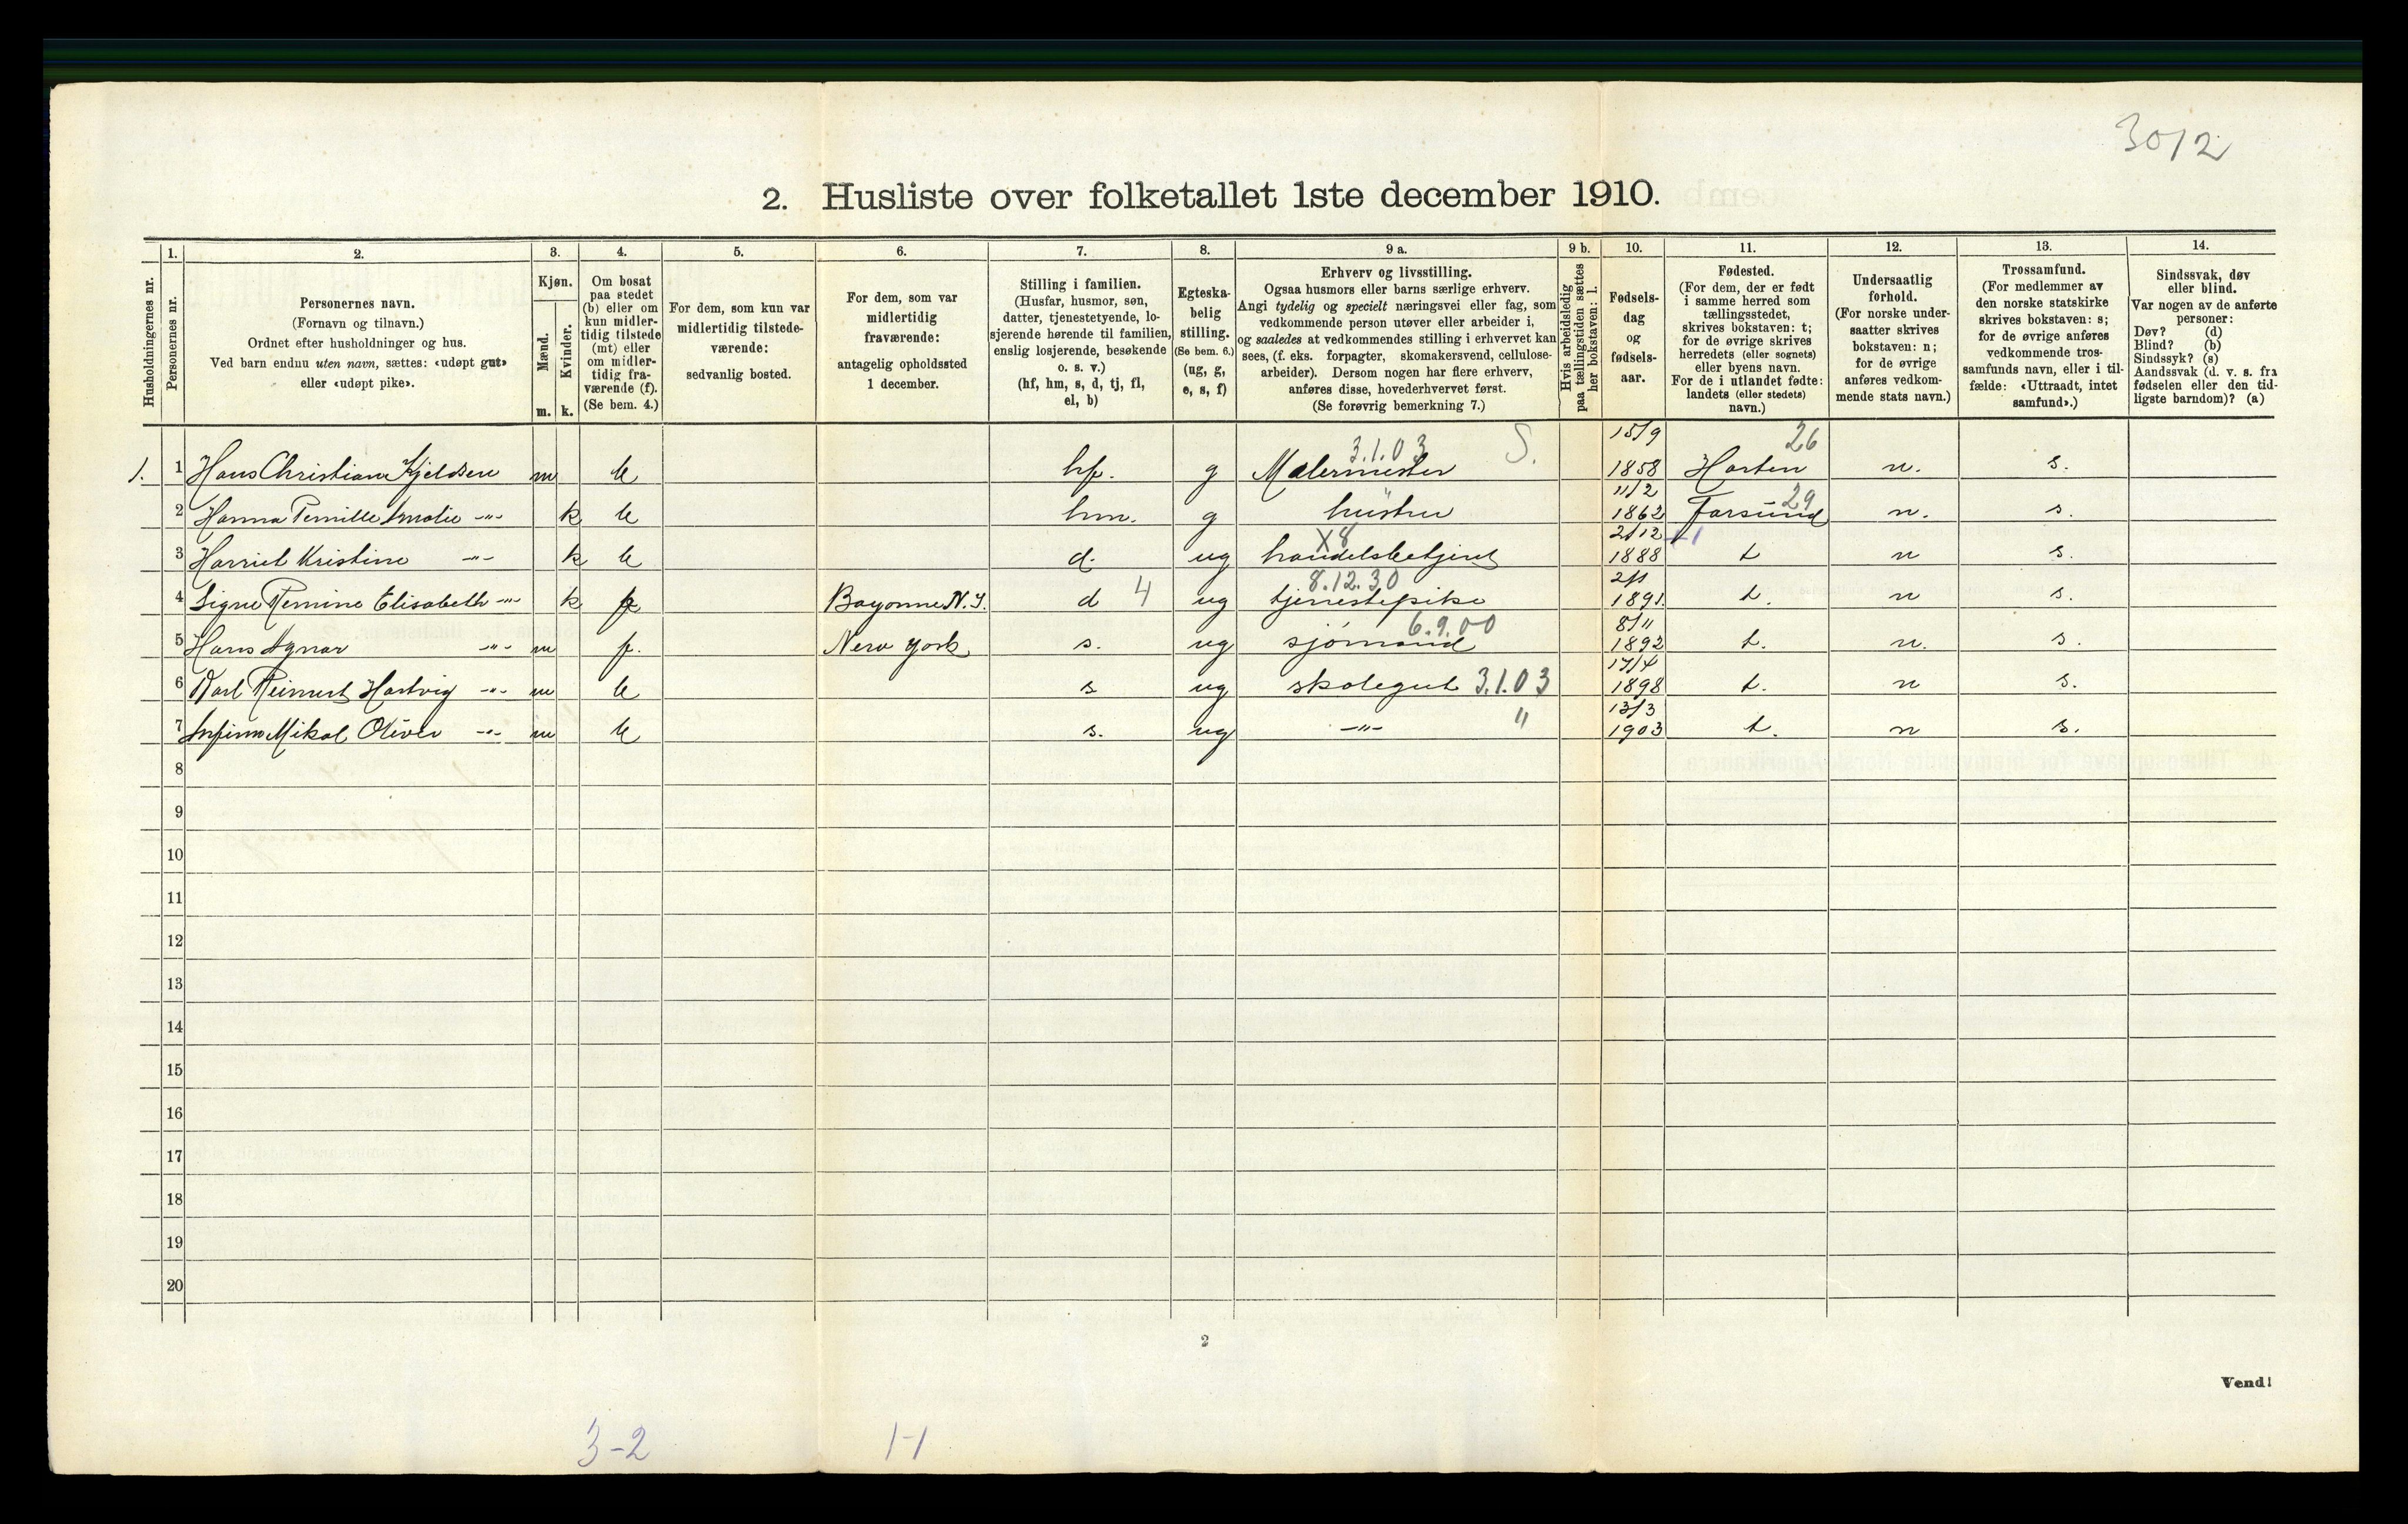 3012
2. Husliste over folketallet 1ste december 1910.
Husholdningernes nr.
1.
Personernes nr.
2.
Personernes navn.
(Fornavn og tilnavn.)
Ordnet efter husholdninger og hus.
Ved barn endnu uten navn, sættes: «udøpt gut»
eller «udøpt pike».
3.
Kjøn.
Mænd.
Kvinder.
m. k.
4.
Om bosat
paa stedet
(b) eller om
kun midler-
tidig tilstede
(mt) eller
om midler-
tidig fra-
værende (f).
(Se bem. 4.)
5.
For dem, som kun var
midlertidig tilstede-
værende:
sedvanlig bosted.
6.
For dem, som var
midlertidig
fraværende:
antagelig opholdssted
1 december.
7.
Stilling i familien.
(Husfar, husmor, søn,
datter, tjenestetyende, lo-
sjerende hørende til familien,
enslig losjerende, besøkende
o. s. v.)
(hf, hm, s, d, tj, fl,
el, b)
8.
Egteska-
belig
stilling.
(Se bem. 6.)
(ug, g,
e, s, f)
9 a.
Erhverv og livsstilling.
Ogsaa husmors eller barns særlige erhverv.
Angi tydelig og specielt næringsvei eller fag, som
vedkommende person utøver eller arbeider i,
og saaledes at vedkommendes stilling i erhvervet kan
sees, (f. eks. forpagter, skomakersvend, cellulose-
arbeider). Dersom nogen har flere erhverv,
anføres disse, hovederhvervet først.
(Se forøvrig bemerkning 7.)
9 b.
Hvis arbeidsledig
paa tællingstiden sættes
her bokstaven: l.
10.
Fødsels-
dag
og
fødsels-
aar.
11.
Fødested.
(For dem, der er født
i samme herred som
tællingsstedet,
skrives bokstaven: t;
for de øvrige skrives
herredets (eller sognets)
eller byens navn.
For de i utlandet fødte:
landets (eller stedets)
navn.)
12.
Undersaatlig
forhold.
(For norske under-
saatter skrives
bokstaven: n;
for de øvrige
anføres vedkom-
mende stats navn.)
13.
Trossamfund.
(For medlemmer av
den norske statskirke
skrives bokstaven: s;
for de øvrige anføres
vedkommende tros-
samfunds navn, eller i til-
fælde: «Uttraadt, intet
samfund».)
14.
Sindssvak, døv
eller blind.
Var nogen av de anførte
personer:
Døv? (d)
Blind? (b)
Sindssyk? (s)
Aandssvak (d. v. s. fra
fødselen eller den tid-
ligste barndom)? (a)
3.1.03 S. 15/9 26
1. 1 Hans Christian Kjeldsen m b hf. g Malermester 1858 Horten n. s.
11/2 29
2 Hanna Pernille Amalie -"- k b hm. g hustru 1862 Farsund n. s.
X8 2/12
3 Harriet Kristine -"- k b d. ug handelsbetjent 1888 t n s.
8.12.30 2/1
4 Signe Remine Elisabeth -"- k f Bayonne N.Y. d 4 ug tjenestepike 1891. t. n s.
6.9.00 8/11
5 Hans Agnar -"- m f. New York s. ug sjømand 1892 t. n. s.
17/4
6 Karl Reinert Hartvig -"- m b s ug skolegut 3.1.03 1898 t. n s.
13/3
7 Mikal Oliver -"- m b s. ug -"- " 1903 t. n s.
8
9
10
11
12
13
14
15
16
17
18
19
20
2
Vend!
3-2 1-1